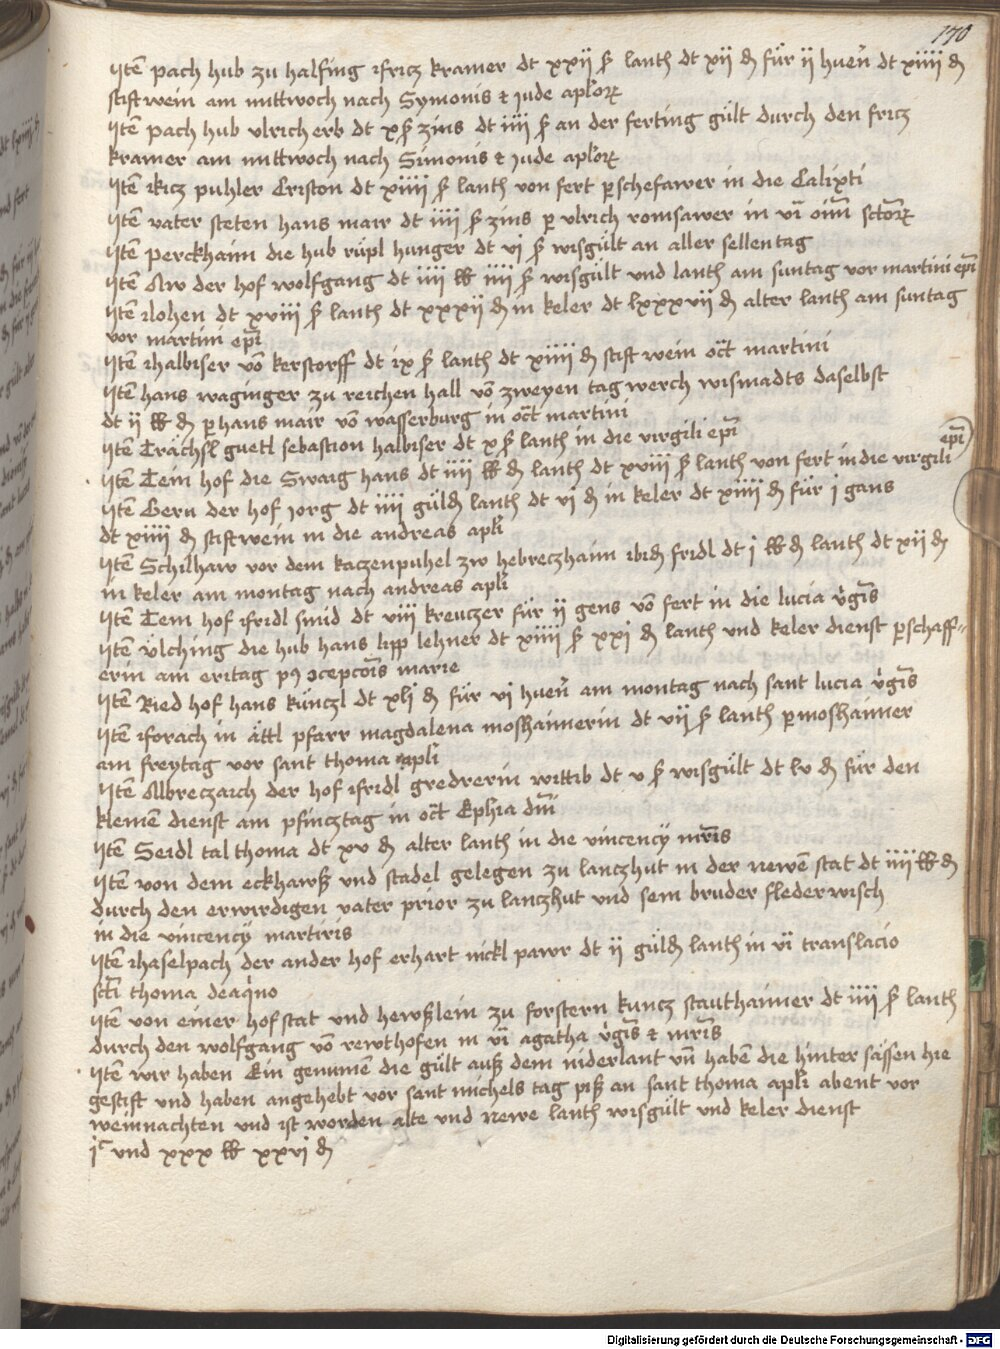 170
Itē pach hub zu halfing ffricz kramer dt xxij ß lanth dt xij ₰ für ij huen̄ dt xiiij ₰
stiftwein am mittwoch nach Symonis et jude apl'orꝝ
Itē pach hub vlrich erb dt x ß zins dt iiij ß an der ferting gült durch den fricz
kramer am mittwoch nach Simonis et jude apl'orꝝ
Itē puhler Criston dt xiiij ß lanth von fert in die Calixti
Itē vater steten hans mair dt iiij ß zins ꝑ vlrich romsawer in vī oīm sctōrꝝ
Itē perckhaim die hub rüpl hunger dt vj ß wisgült an aller sellentag
Itē Aw der hof wolfgang dt iiij ℔ iiij ß wisgült und lanth am suntag vor martini ep̄i
Itē lohen dt xviij ß lanth dt xxxij ₰ in keler dt lxxxvij ₰ alter lanth am suntag
vor martini ep̄i
Itē halbiser vō kerstorff dt ix ß lanth dt xiiij ₰ stift wein oct̄ martini
Itē hans waginger zu reichen hall vō zweyen tagwerch wismadts daselbst
dt ij ℔ ₰ ꝑ hans mair vō wasserburg in oct̄ martini
Itē Trächsl guetl sebastion halbiser dt x ß lanth in die virgili ep̄i
Itē Tein hof die Swaig hans dt iiij ℔ ₰ lanth dt xviij ß lanth von fert in die virgili ep̄i
Itē Gern der hof jorg dt iiij guld₰ lanth dt vj ₰ in keler dt xiiij ₰ für j gans
dt xiiij ₰ stiftwein in die andreas apl'i
Itē Schilhaw vor dem kaczenpuhel zw hebreczhaim ibid₰ fridl dt j ℔ ₰ lanth dt xij ₰
in keler am montag nach andreas apl'i
Itē Tein hof ffridl smid dt viij kreuczer für ij gens vō fert in die lucia v̄gīs
Itē ülching die hub hans lipp lehner dt xiiij ß xxj ₰ lanth und keler dienst ꝑ schaff=
erin am eritag pꝰ ↄcepcōis marie
Itē Ried hof hans künczl dt xlj ₰ für vj huen̄ am montag nach sant lucia v̄gīs
Itē fforach in ättl pfarr magdalena moshaimerin dt vij ß lanth ꝑ moshaimer
am freytag vor sant thoma apl'i
Itē Albreczaich der hof ffridl gredrerin wittib dt v ß wisgült dt lv ₰ für den
klemē dienst am pfincztag in oct̄ Eph'ia dn̄i
Itē Seidl tal thoma dt xv ₰ alter lanth in die vincency mr̄is
Itē von dem eckhawß und stadel gelegen zu lanczhut in der newē stat dt iiij ℔ ₰
durch den erwirdigen vater prior zu lanczhut und sein bruder flederwisch
in die vincency martiris
Itē haselpach der ander hof erhart nickl pawr dt ij guld₰ lanth in vī translacio
sct̄i thoma deaq̄no
Itē von einer hofstat und hewslein zu forstern kuncz stauthaimer dt iiij ß lanth
durch den wolfgang vō rewthofen in vī agatha v̄gīs et mr̄is
Itē wir haben Ein genumē die gült auß dem niderlant vn̄ habē die hinter sässen hie
gestift und haben angehebt vor sant michels tag piß an sant thoma apl'i abent vor
weinnachten und ist worden alte und newe lanth wisgült und keler dienst
jᶜ und xxx ℔ xxvj ₰
Digitalisierung gefördert durch die Deutsche Forschungsgemeinschaft - DFG